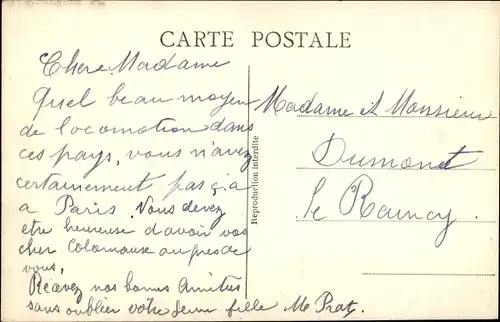 CARTE POSTALE
Chere Madame
Quel beau moyen
de locomotion dans
ces pays, vous n'avez
certainement pas ça
a Paris. Vous devez
etre heureuse d'avoir vos
cher Colomause aupres de
vous,
Recevez nos bonnes Amitiés
sans oublier votre fille Me Prat.
Reproduction interdite
Madame et Monsieur
Dumont
Le Raincy